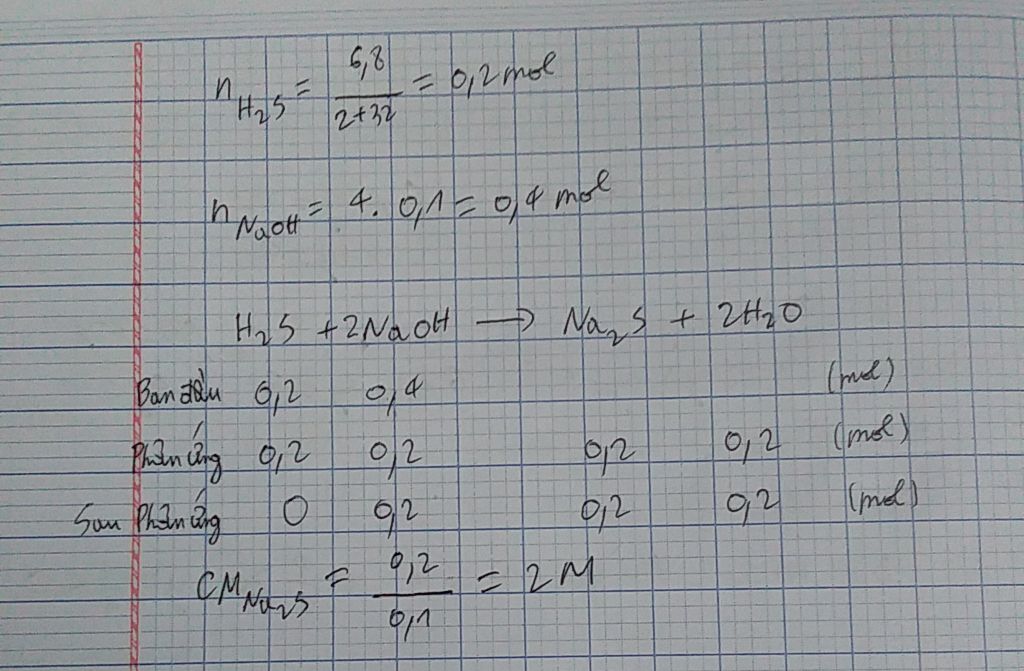 n H₂S = 6,8 / 2+32 = 0,2 mol
n NaOH = 4. 0,1 = 0,4 mol
H₂S + 2NaOH → Na₂S + 2H₂O
Ban đầu 0,2 0,4 (mol)
Phản ứng 0,2 0,2 0,2 0,2 (mol)
Sau Phản ứng 0 0,2 0,2 0,2 (mol)
CM Na₂S = 0,2 / 0,1 = 2M